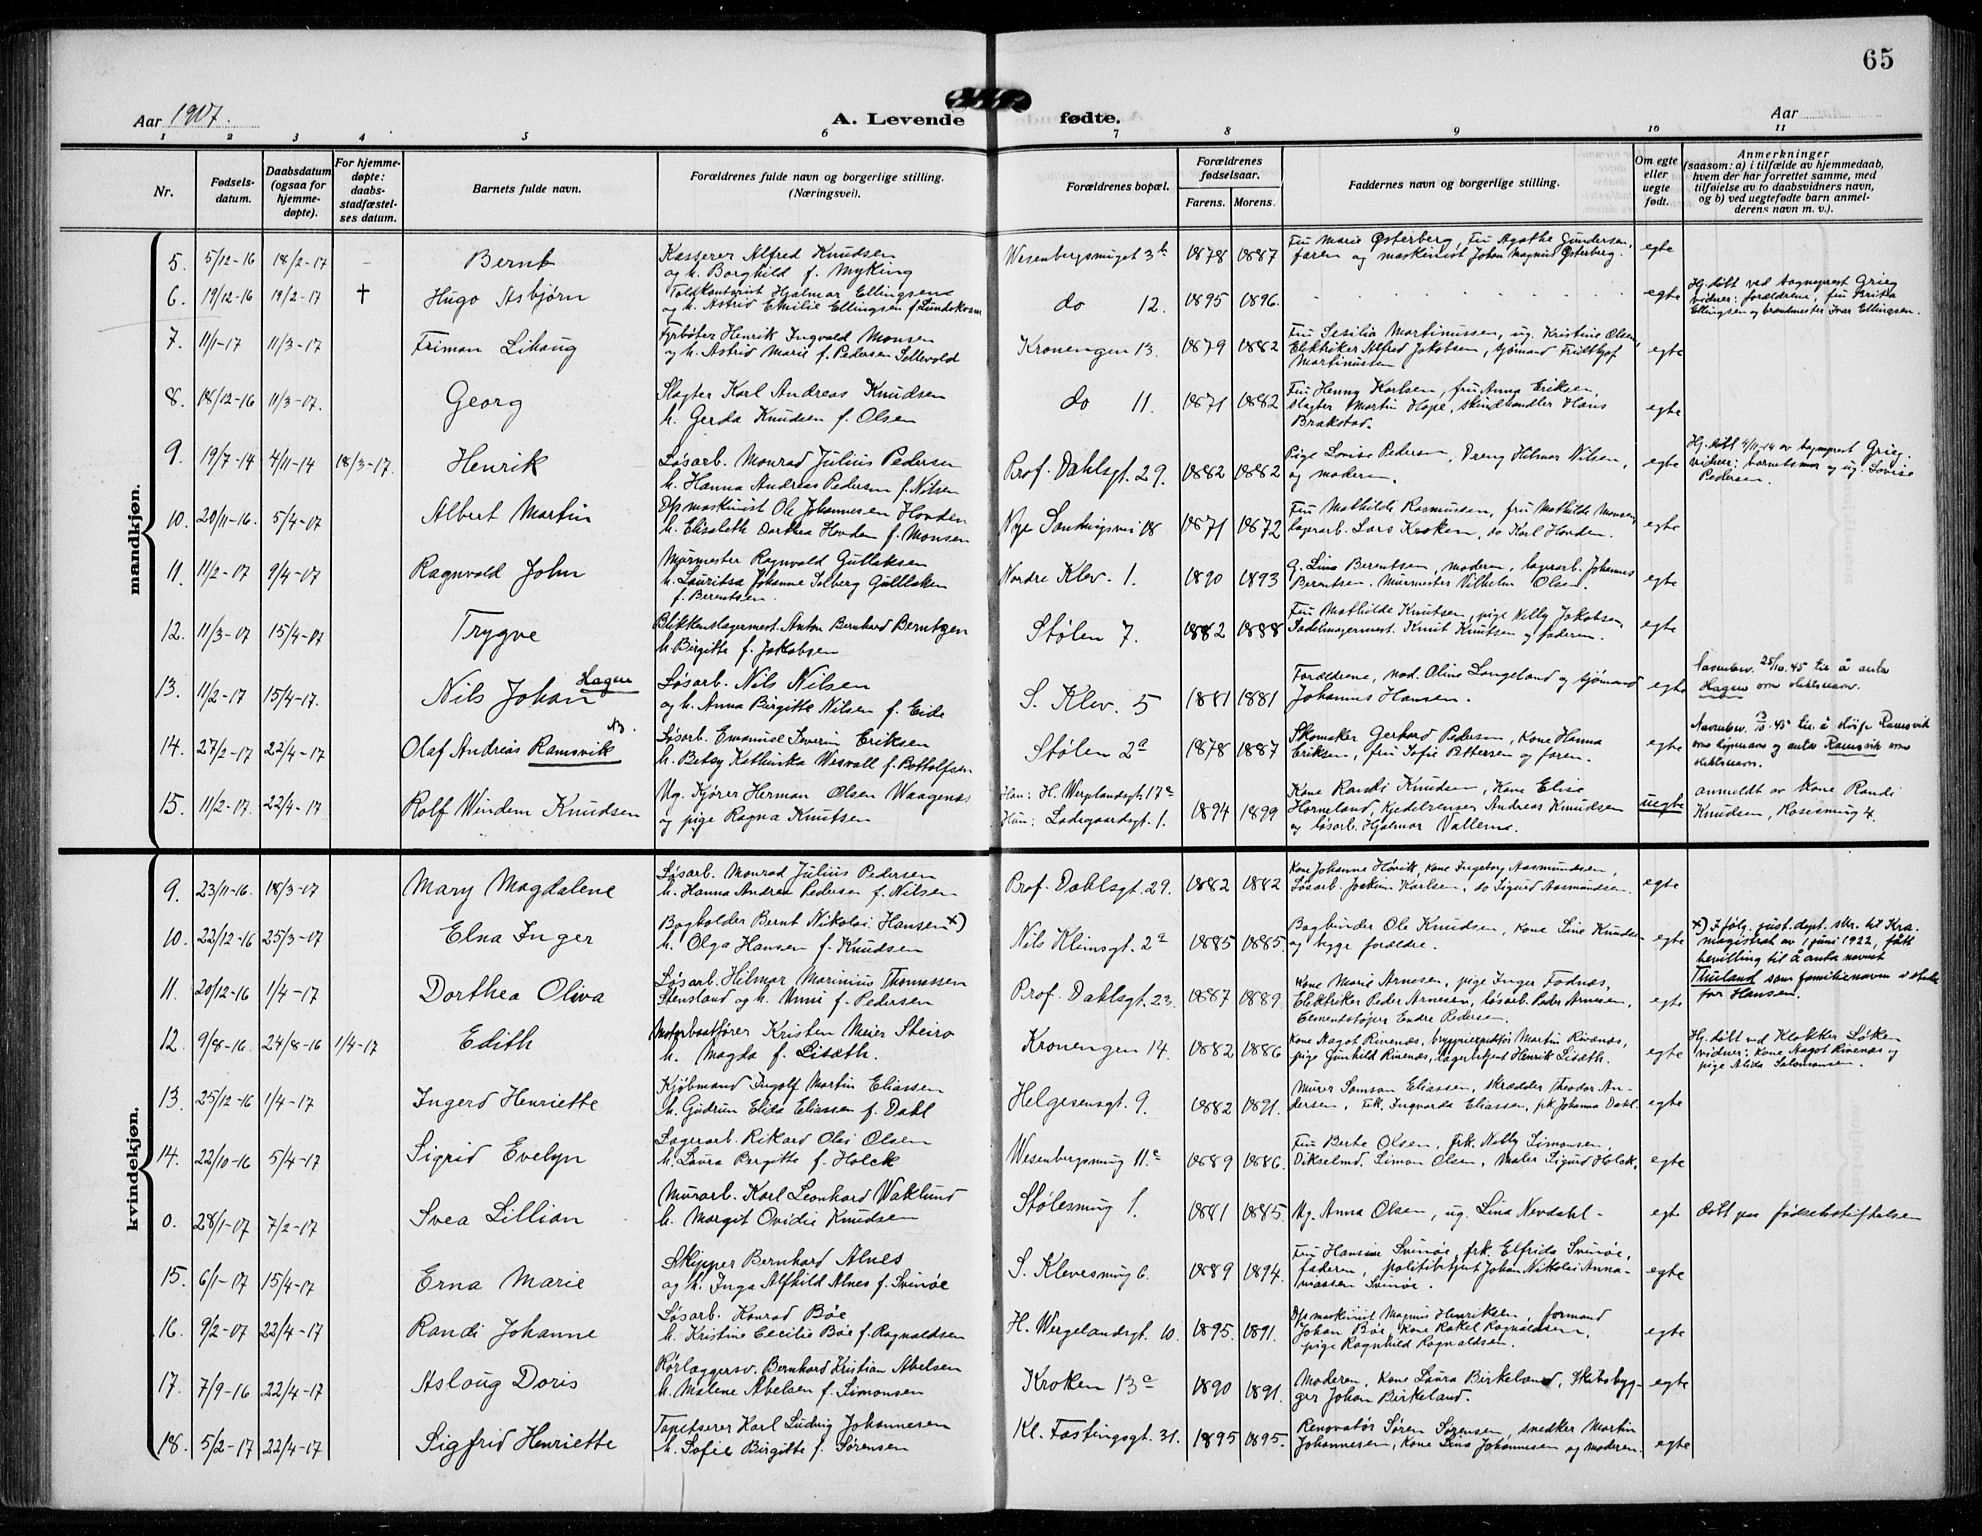 65
Aar 1917.
A. Levende fødte.
Aar
1 2 3 4 5 6 7 8 9 10 11
Nr.
Fødsels-
datum.
Daabsdatum
(ogsaa for
hjemme-
døpte).
For hjemme-
døpte:
daabs-
stadfæstel-
ses datum.
Barnets fulde navn.
Forældrenes fulde navn og borgerlige stilling.
(Næringsvei).
Forældrenes bopæl.
Forældrenes
fødselsaar.
Farens. Morens.
Faddernes navn og borgerlige stilling.
Om egte
eller
uegte
født.
Anmerkninger
(saasom: a) i tilfælde av hjemmedaab,
hvem der har forrettet samme, med
tilføielse av to daabsvidners navn,
og b) ved uegtefødte barn anmel-
derens navn m. v.).
mandkjøn.
5. 5/12-16 18/2-17 – Bernt
Kasserer Alfred Knudsen
og h. Borghild f. Myking
Wesenbergsmuget 3b 1878 1887
Fru Marie Østerberg, Fru Agathe Gundersen,
faren og maskinist Johan Magnus Østerberg.
egte
6. 19/12-16 19/2-17 † Hugo Asbjørn
Toldkontorist Hjalmar Ellingsen
og h. Astrid Emilie Ellingsen f. Lundekvam
do 12. 1895 1896.
egte
Hj. døbt ved sogneprest Grieg
vidner: forældrene, fru Brita
Ellingsen og brandmester Ivar Ellingsen.
7. 11/1-17 11/3-17 Friman Lihaug
Fyrbøter Henrik Ingvald Monsen
og h. Astrid Marie f. Pedersen Sollevold
Kronengen 13. 1879 1882
Fru Sesilia Martinussen, ug. Kristine Olsen,
Elektriker Alfred Jakobsen, sjømand Fridthjof
Martinussen
egte
8. 18/12-16 11/3-17. Georg
Slagter Karl Andreas Knudsen
h. Gerda Knudsen f. Olsen
do 11. 1871 1882
Fru Henny Karlsen, fru Anna Eriksen,
slagter Martin Hope, skindhandler Hans
Brakstad.
egte
9. 19/7-14 4/11-14 18/3-17. Henrik
Løsarb. Monrad Julius Pedersen
h. Hanna Andrea Pedersen f. Nilsen
Prof. Dahlsgt. 29. 1882 1882
Pige Lovise Pedersen, Dreng Hilmar Nilsen,
og moderen.
egte
Hj. døbt 4/11-14 av sogneprest Grieg.
vidner: barnets mor og ug. Lovise
Pedersen.
10. 20/11-16. 5/4-17 Albert Martin
Dpsmaskinist Ole Johannesen Hovden
h. Elisabeth Dorthea Hovden f. Monsen
Nye Sandviksvei 18 1871 1872
Fru Mathilde Rasmussen, fru Mathilde Monsen
lagerarb. Lars Kroken, do Karl Hovden.
egte
11. 11/2-17 9/4-17 Ragnvald John
Murmester Ragnvald Gullaksen
h. Lauritsa Johanne Solberg Gullaksen
f. Berentsen.
Nordre Klev. 1. 1890 1893
G. Lina Berentsen, moderen, lagerarb. Johannes
Berentsen, Murmester Vilhelm Olsen.
egte
12. 11/3-17 15/4-17 Trygve
Blikkenslagermest. Anton Bernhard Berntzen
h. Birgitte f. Jakobsen
Stølen 7. 1882 1888
Fru Mathilde Knutsen, pige Nelly Jakobsen,
Sadelmagermest. Knut Knutsen og faderen.
egte
13. 11/2-17 15/4-17. Nils Johan Hagen
Løsarb. Nils Nilsen
og h. Anna Birgitte Nilsen f. Eide
S. Klev. 5 1881 1881
Forældrene, mad. Oline Langeland og sjømand
Johannes Hansen.
egte
Navnebev. 25/10.45 til å anta
Hagen som slektsnavn.
14. 27/2-17 22/4-17 Olaf Andreas Ramsvik
Løsarb. Emanuel Severin Eriksen
h. Betsy Kathinka Wesvall f. Bottolfsen
Stølen 2a 1878 1887
Skomaker Gerhard Pedersen, Kone Hanna
Eriksen, fru Sofie Pettersen og faren.
egte
og anta Ramsvik som
slektsnavn.
15. 11/2-17. 22/4-17 Rolf Windem Knudsen
Ug. Kjører Herman Olsen Waagenes
og pige Ragna Knutsen
Han: H. Wergelandsgt. 17c
Hun: Ladegaardsgt. 1.
1894 1899
Kone Randi Knudsen, Kone Elise
Horneland, Kjedelrenser Andreas Knudsen
og løsarb. Hjalmar Vallerne.
uegte
anmeldt av Kone Randi
Knudsen, Rosesmug 4.
kvindekjøn.
9. 23/11-16. 18/3-17 Mary Magdalene
Løsarb. Monrad Julius Pedersen
h. Hanna Andrea Pedersen f. Nilsen
Prof. Dahlsgt. 29. 1882 1882
Kone Johanne Høvik, Kone Ingeborg Aasmundsen,
Løsarb. Joakim Karlsen, do Sigurd Aasmundsen.
egte
10. 22/12-16 25/3-17 Elna Inger
Bogholder Bernt Nikolai Hansen x)
h. Olga Hansen f. Knudsen
Nils Klimsgt. 2a 1885 1885
Bogbinder Ole Knudsen, Kone Lina Knudsen
og begge forældre.
egte
x) Ifølg. just. dept. skr. til Kra.
magistrat av 1 juni 1922, fått
bevilling til å anta navnet
Thuland som familienavn i stedet
for Hansen.
11. 20/12-16 1/4-17 Dorthea Oliva
Løsarb. Hilmar Marinius Thomassen
Stensland og h. Unni f. Pedersen
Prof. Dahlsgt. 23. 1887 1889
Kone Marie Arnesen, pige Inger Fodnæs,
Elektriker Peder Arnesen, løsarb. Peder Arnesen,
Cementstøper Endre Pedersen.
egte
12. 9/8-16. 24/8-16 1/4-17 Edith
Motorbaatfører Kristen Meier Steiro
h. Magda f. Lisæth.
Kronengen 14. 1882 1886
Kone Aagot Rivenæs, bryggeriexpeditør Martin Rivenæs,
pige Gunhild Rivenæs, lagerbetjent Henrik Lisæth.
egte
Hj. døbt ved Klokker Løken
vidner: Kone Aagot Rivenæs og
pige Alida Salomonsen.
13. 25/12-16 1/4-17 Ingerd Henriette
Kjøbmand Ingolf Martin Eliassen
h. Gudrun Elida Eliassen f. Dahl
Helgesensgt. 9. 1882 1891.
Murer Samson Eliassen, skrædder Theodor An-
dersen, Frk. Ingvarda Eliassen, frk. Johanna Dahl.
egte
14. 22/10-16 5/4-17 Sigrid Evelyn
Lagerarb. Rikard Olai Olsen
h. Laura Bergitte f. Holck
Wesenbergsmug 11c 1889 1886.
Fru Berte Olsen, frk. Nelly Simonsen,
Dikselmd. Simon Olsen, Maler Sigurd Holck.
egte
0. 28/1-17 7/2-17 Svea Lillian
Murarb. Karl Leonhard Waklund
h. Margit Ovidie Knudsen
Stølesmug 1. 1881 1885.
Ug. Anna Olsen, ug. Lina Nevdahl -
egte
døbt paa fødselsstiftelsen
15. 6/1-17 15/4-17 Erna Marie
Skipper Bernhard Alnes
og h. Inga Alfhild Alnes f. Svinøe
S. Klevesmug 6. 1889 1894.
Fru Hansine Svinøe, frk. Elfrida Svinøe,
faderen, politibetjent Johan Nikolai Anna-
niassen Svinøe.
egte
16. 9/2-17 22/4-17 Randi Johanne
Løsarb. Konrad Bøe
h. Kristine Cecilie Bøe f. Ragnaldsen
H. Wergelandsgt. 10. 1895. 1891.
Dpsmaskinist Magnus Henriksen, formand
Johan Bøe, Kone Rakel Ragnaldsen,
pige Ragnhild Ragnaldsen.
egte
17. 7/9-16 22/4-17 Aslaug Doris
Rørlæggersv. Bernhard Kristian Abelsen
h. Malene Abelsen f. Simonsen
Kroken 13a 1890 1891.
Moderen, Kone Laura Birkeland, Skibsbyg-
ger Johan Birkeland.
egte
18. 5/2-17 22/4-17 Sigfrid Henriette
Tapetserer Karl Ludvig Johannesen
h. Sofie Birgitte f. Sørensen
Kl. Fastingsgt. 31. 1895 1895.
Renovatør Søren Sørensen, snedker Martin
Johannesen, Kone Lina Johannesen og moderen.
egte